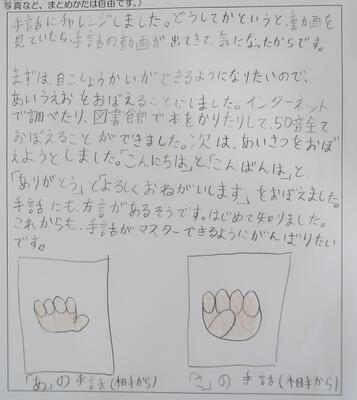 写真など、まとめかたは自由です。)
手話にチャレンジしました。どうしてかというと、動画を
見ていたら、手話の動画が出てきて、気になったからです。
まずは、自こしょうかいができるようになりたいので、
あいうえおをおぼえることにしました。インターネット
で調べたり、図書館で本をかりたりして、50音全て
おぼえることができました。次は、あいさつをおぼ
えようとしました。「こんにちは」と、「こんばんは」と、
「ありがとう」と「よろしくおねがいします」をおぼえました。
手話にも、方言があるそうです。はじめて知りました。
これからも、手話がマスターできるようにがんばりたい
です。
「あ」の手話(相手から)
「さ」の手話(相手から)